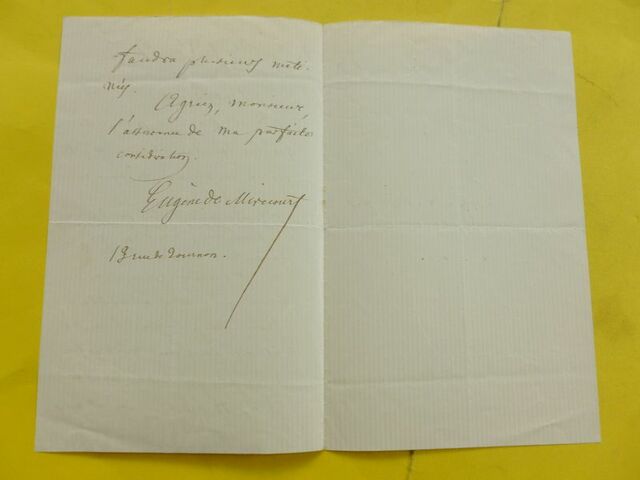 faudra plusieurs mati-
nées.
Agréez, monsieur
l'assurance de ma parfaite
considération.
Eugène de Mirecourt
rue de Tournon.